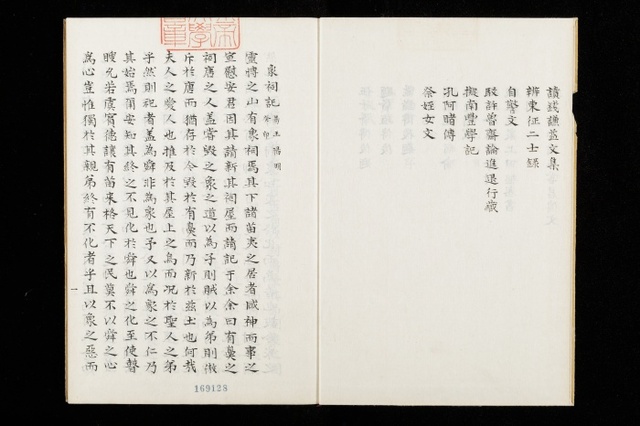 讀錢謙益文集
辨東征二士錄
自警文
駁許魯齋論進退行藏
擬南豐學記
孔阿睹傳
祭姪女文
象祠記
靈博之山有象祠焉其下諸苗夷之居者咸神而事之
宣慰安君因其請新其祠屋而請記于余余曰有鼻之
祠唐之人蓋嘗毀之象之道以為子則賊以為弟則傲
斥於唐而猶存於今毀於有鼻而乃新於茲土也何哉
夫人之愛人也推及於其屋上之烏而况於聖人之弟
乎然則祀者盖為舜非為象也予又以為象之不仁乃
其始焉爾安知其終之不見化於舜也舜之化至使瞽
瞍允若虞賓德讓有苗來格天下之民莫不以舜之心
為心豈惟獨於其親弟終有不化者乎且以象之惡而
一
169128